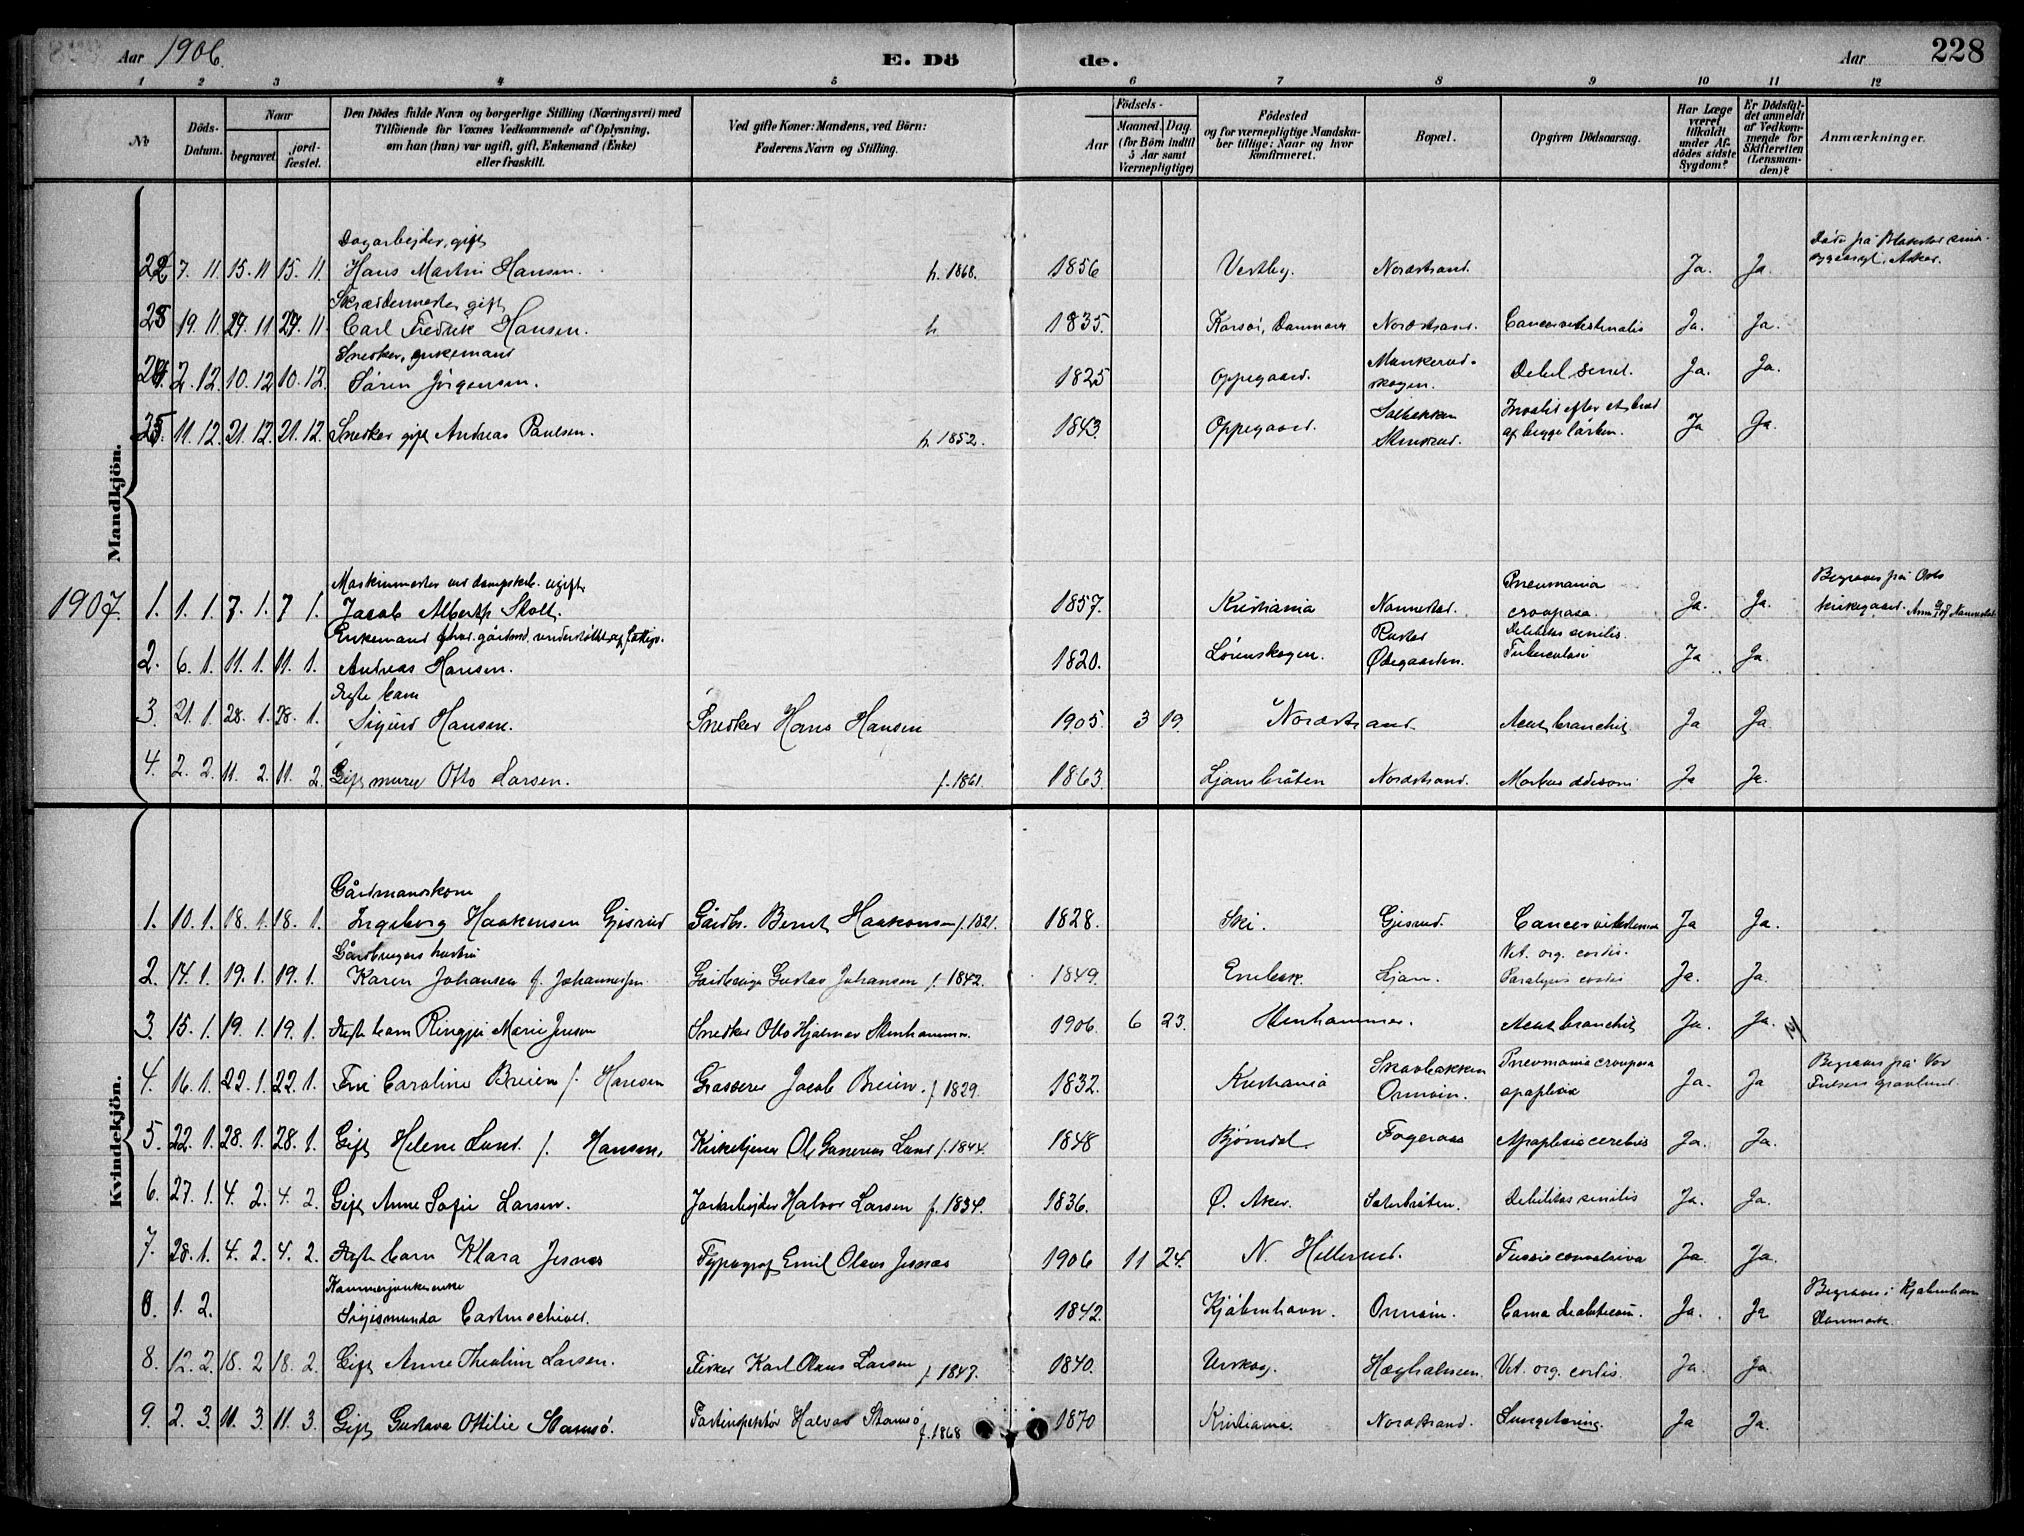 Aar 1906. E. Dö de. Aar 228
1 2 3 4 5 6 7 8 9 10 11 12
No
Döds-Datum.
Naar
begravet.
jord-fæstet.
Den Dödes fulde Navn og borgerlige Stilling (Næringsvei) med
Tilföiende for Voxnes Vedkommende af Oplysning,
om han (hun) var ugift, gift, Enkemand (Enke)
eller fraskilt.
Ved gifte Koner: Mandens, ved Börn:
Faderens Navn og Stilling.
Födsels-
Aar
Maaned. Dag.
(for Börn indtil
5 Aar samt
Værnepligtige)
Födested
og for værnepligtige Mandska-
ber tillige: Naar og hvor
konfirmeret.
Bopæl.
Opgiven Dödsaarsag.
Har Læge
været
tilkaldt
under Af-
dödes sidste
Sygdom?
Er Dödsfal-
det anmeldt
af Vedkom-
mende for
Skifteretten
(Lensman-
den)?
Anmærkninger.
Mandkjön.
Dagarbejder, gift
22 7. 11. 15. 11 15. 11. Hans Martin Hansen. f. 1868. 1856 Vestby. Nordstrand. Ja. Ja. Asker.
Skræddermester gift
23 19. 11. 27. 11. 27. 11. Carl Fredrik Hansen. 1835. Korsör, Danmark Nordstrand. Ja. Ja.
Snedker, enkemand
24 2. 12. 10. 12 10. 12. Søren Jørgensen. 1825 Oppegaard. Munkerud-skogen. Debil. senil. Ja. Ja.
25. 11. 12. 21. 12. 21. 12. Snedker gift Andreas Paulsen. f. 1852. 1843. Oppegaard. Ja Ja.
1907.
Maskinmester ugift
1. 1. 1. 7. 1. 7 1. Jacob Alberth Stolt. 1857. Kristiania Nannestad. Pneumonia crouposa. Ja. Ja. Begraves på Oslo kirkegaard.
Enkemand
2. 6. 1. 11. 1. 11. 1. Andreas Hansen. 1820. Lørenskogen. Rustad Ødegaarden. Debilitas senilis. Tuberculose Ja Ja.
Ægte barn
3. 21. 1. 28. 1. 28. 1. Sigurd Hansen. Snedker Hans Hansen 1905. 3 19. Nordstrand. Acut bronchit Ja Ja.
4. 2. 2. 11. 2. 11. 2 Gift murer Otto Larsen. f. 1861. 1863. Ljansbråten Nordstrand. Ja Ja.
Kvindekjön.
Gårdmandskone
1. 10. 1. 18. 1. 18. 1. Ingeborg Haakensen Gjesrud Gårdbr. Bernt Haakonsen f. 1821. 1828. Ski. Gjesrud. Ja Ja.
Gårdbrugers hustru
2. 14. 1. 19. 1. 19. 1. Karen Johansen f. Johannessen Gårdbruger Gustav Johansen f. 1842. 1849. Enebak. Ljan. Vit. org. cordis. Paralysis cordis Ja. Ja.
3. 15. 1. 19. 1. 19. 1. Ægte barn Marie Jensen Snedker Otto Hjalmar Stenhammer. 1906. 6 23. Stenhammer. Acut bronchit Ja. Ja.
4. 16. 1. 22. 1. 22. 1. Fru Caroline Breien f. Hansen Grosserer Jacob Breien. f. 1829. 1832. Kristiania Skovbakken Ormøen. Pneumonia crouposa apoplexia Ja. Ja Begraves på Vor Frelsers gravlund.
5. 22. 1. 28. 1. 28. 1. Gift Helene Lund. f. Hansen. Kirketjener Lund f. 1844. 1848 Bjørndal Fageraas Apoplexia cerebris Ja. Ja.
6. 27. 1. 4. 2. 4. 2. Gift Anne Sofie Larsen. Jordarbejder Halvor Larsen f. 1834. 1836. Ø. Aker. Saterbråten. Debilitas senilis Ja. Ja.
7. 28. 1. 4. 2. 4. 2. Ægte barn Klara Jesnæs Typograf Emil Olaus Jesnæs 1906 11 24. N. Hellerud. Tussis convulsiva Ja. Ja.
Kammerjunkerenke
0. 1. 2. Sigismunda Castenschiold. 1842. Kjøbenhavn. Ormøen. Coma diabeticum Ja. Ja Begraves i Kjøbenhavn Danmark.
8. 12. 2. 18. 2 18. 2. Gift Anne Theoline Larsen. Fisker Karl Olaus Larsen f. 1847. 1840. Urskog. Hæghølmen. Vit. org. cordis. Ja. Ja
9. 2. 3. 11. 3 11. 3. Gift Gustava Ottilie Stamsø. Halvor Stamsø f. 1868 1870 Kristiania. Nordstrand. Lungetæring. Ja Ja.